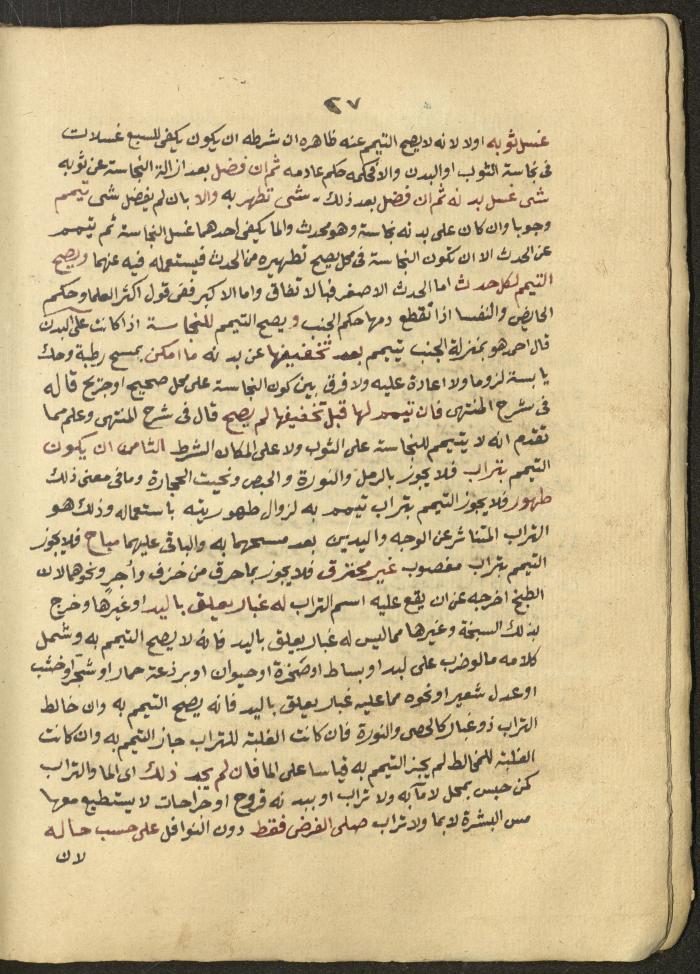 ٢٧
غسل ثوبه اولا لانه لا يصح التيمم عنه ظاهره ان شرطه ان يكون يكفى للسبع غسلات
فى نجاسة الثوب او البدن والا فحكمه حكم عادمه ثم ان فضل بعد ازالة النجاسة عن ثوبه
شى غسل بدنه ثم ان فضل بعد ذلك شى تطهر به والا بان لم يفضل شى تيمم
وجوبا وان كان على بدنه نجاسة وهو محدث والما يكفى احدهما غسل النجاسة ثم تيمم
عن الحدث الا ان تكون النجاسة فى محل يصح تطهيره من الحدث فيستعمله فيه عنهما ويصح
التيمم لكل حدث اما الحدث الاصغر فبالاتفاق واما الاكبر ففى قول اكثر العلما وحكم
الحايض والنفسا اذا تقطع دمها حكم الجنب ويصح التيمم للنجاسة اذا كانت على البدن
قال احمد هو بمنزلة الجنب يتيمم بعد تخفيفها عن بدنه ما امكن بمسح رطبة وحك
يابسة لزوما ولا اعادة عليه ولا فرق بين كون النجاسة على محل صحيح او جريح قاله
فى شرح المنتهى فان تيمم لها قبل تخفيفها لم يصح قال فى شرح المنتهى وعلم مما
تقدم انه لا يتيمم للنجاسة على الثوب ولا على المكان الشرط الثامن ان يكون
التيمم بتراب فلا يجوز بالرمل والنورة والجص ونحيت الحجارة وما فى معنى ذلك
طهور فلا يجوز التيمم بتراب تيمم به لزوال طهوريته باستعماله وذلك هو
التراب المتناثر عن الوجه واليدين بعد مسحهما به والباقى عليهما مباح فلا يجوز
التيمم بتراب مغصوب غير محترق فلا يجوز بما حرق من خزف واجر ونحوهما لان
الطبخ اخرجه عن ان يقع عليه اسم التراب له غبار يعلق باليد او غيرها وخرج
بذلك السبخة وغيرها مما ليس له غبار يعلق باليد فانه لا يصح التيمم به وشمل
كلامه ما لو ضرب على لبد او بساط او صخرة او حيوان او برذعة حمار او شجر او خشب
او عدل شعير او نحوه مما عليه غبار يعلق باليد فانه يصح التيمم به وان خالط
التراب ذو غبار كالجص والنورة فان كانت الغلبة للتراب جاز التيمم به وان كانت
الغلبة للمخالط لم يجز التيمم به قياسا على الما فان لم يجد ذلك اى الما والتراب
كمن حبس بمحل لا ما به ولا تراب او ببدنه قروح او جراحات لا يستطيع معها
مس البشرة لا بما ولا تراب صلى الفرض فقط دون النوافل على حسب حاله
لان